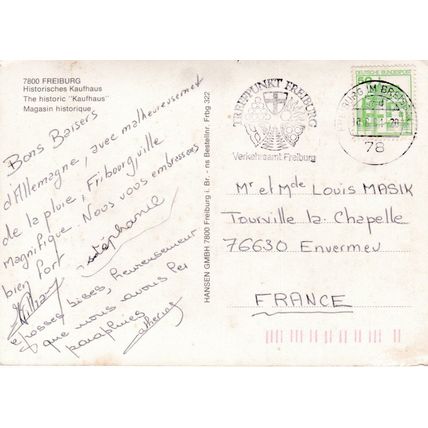 7800 FREIBURG
Historisches Kaufhaus
The historic "Kaufhaus"
Magasin historique
Bons Baisers
d'Allemagne, avec malheureusement
de la pluie, Fribourg ville
magnifique - Nous vous embrassons
bien fort
Stephanie
grosses bises, heureusement
que nous avons les
parapluies
HANSEN GMBH 7800 Freiburg i. Br. - ns Bestellnr. Frbg 322
TREFFPUNKT FREIBURG
Verkehrsamt Freiburg
DEUTSCHE BUNDESPOST
FREIBURG IM BREISGAU
78
Mr et Mde LOUIS MASIK
Tourville la Chapelle
76630 Envermeu
FRANCE